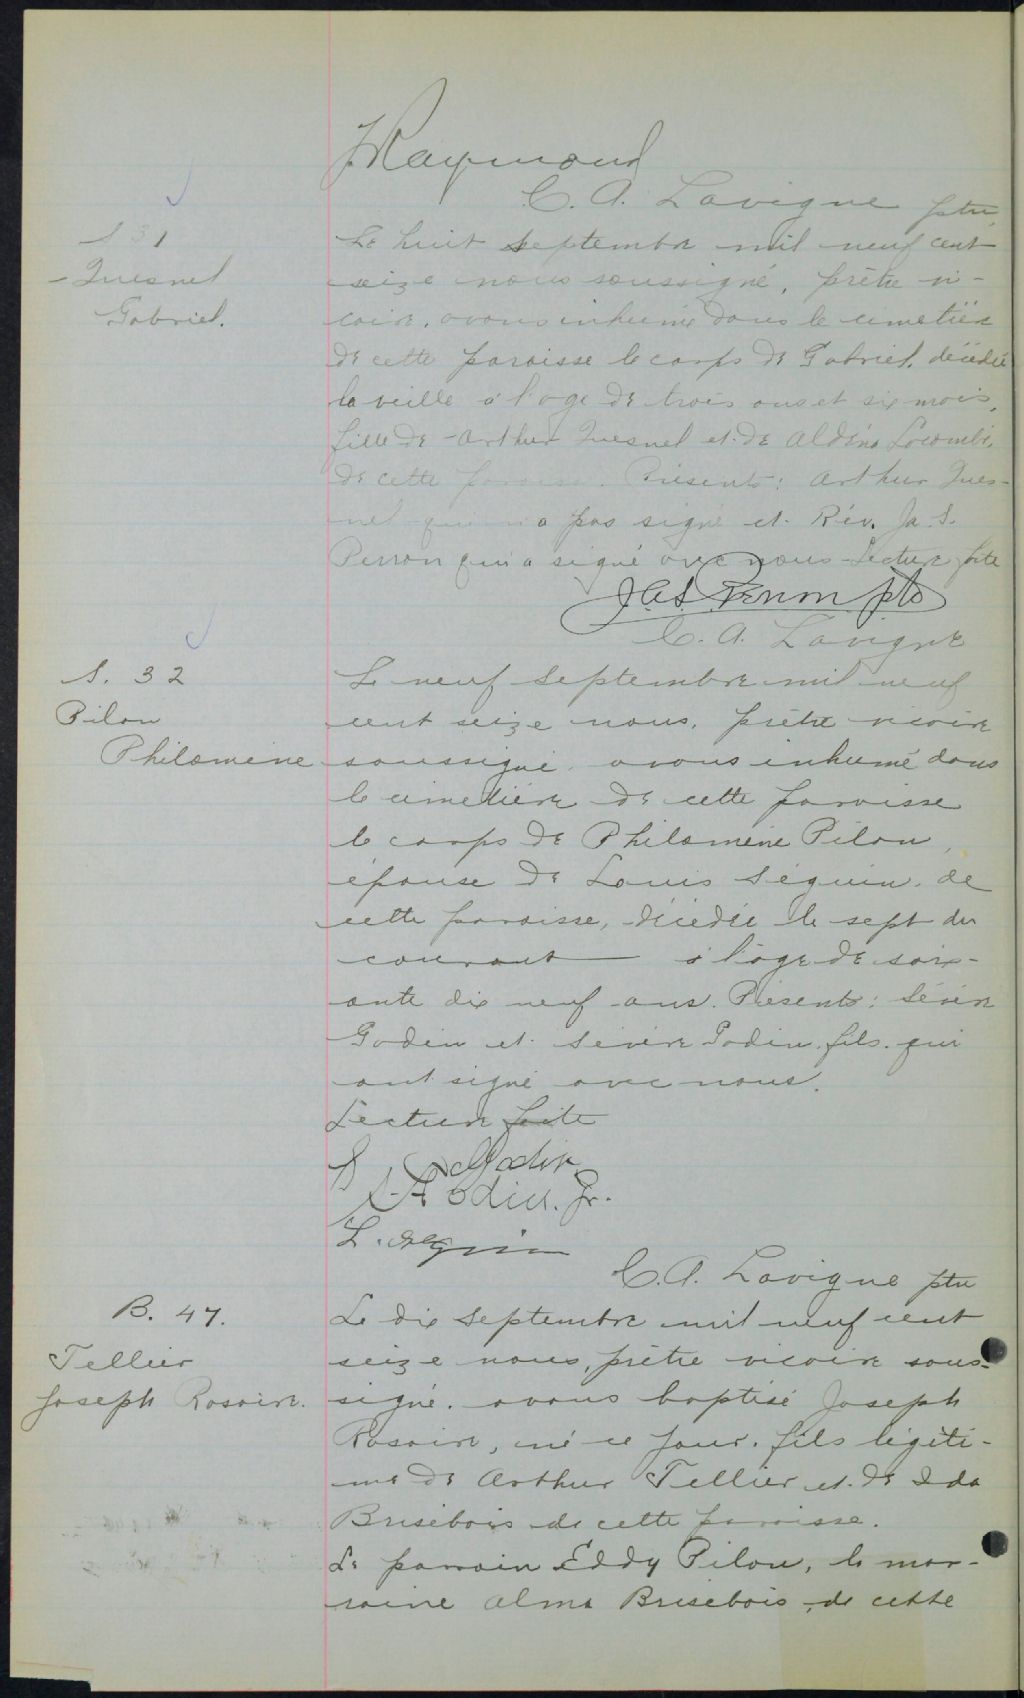 J. Raymond
C. A. Lavigne ptre
S 31
Quesnel
Gabriel.
Le huit septembre mil neuf cent
seize nous soussigné, prêtre vi-
caire, avons inhumé dans le cimetière
de cette paroisse le corps de Gabriel, décédé
la veille à l'age de trois ans et six mois,
fille de Arthur Quesnel et de Aldéna Lacombe,
de cette paroisse. Présents: Arthur Ques-
nel qui n'a pas signé et Rév. Ja. S.
Perron qui a signé avec nous Lecture faite
J. A. S. Perron ptre
C. A. Lavigne
S. 32
Pilon
Philomène
Le neuf septembre mil neuf
cent seize nous, prêtre vicaire
soussigné, avons inhumé dans
le cimetière de cette paroisse
le corps de Philomène Pilon,
épouse de Louis Séguin, de
cette paroisse, décédée le sept du
courant à l'age de soix-
ante dix neuf ans. Présents: Sévère
Godin et Sévère Godin fils qui
ont signé avec nous.
Lecture faite
S Godin
S. Godin. Jr.
L. Seguin
C. A. Lavigne ptre
B. 47.
Tellier
Joseph Rosaire.
Le dix septembre mil neuf cent
seize nous, prêtre vicaire sous-
signé, avons baptisé Joseph
Rosaire, né ce jour, fils légiti-
me de Arthur Tellier et de Ida
Brisebois de cette paroisse.
Le parrain Eddy Pilon, la mar-
raine Alma Brisebois, de cette